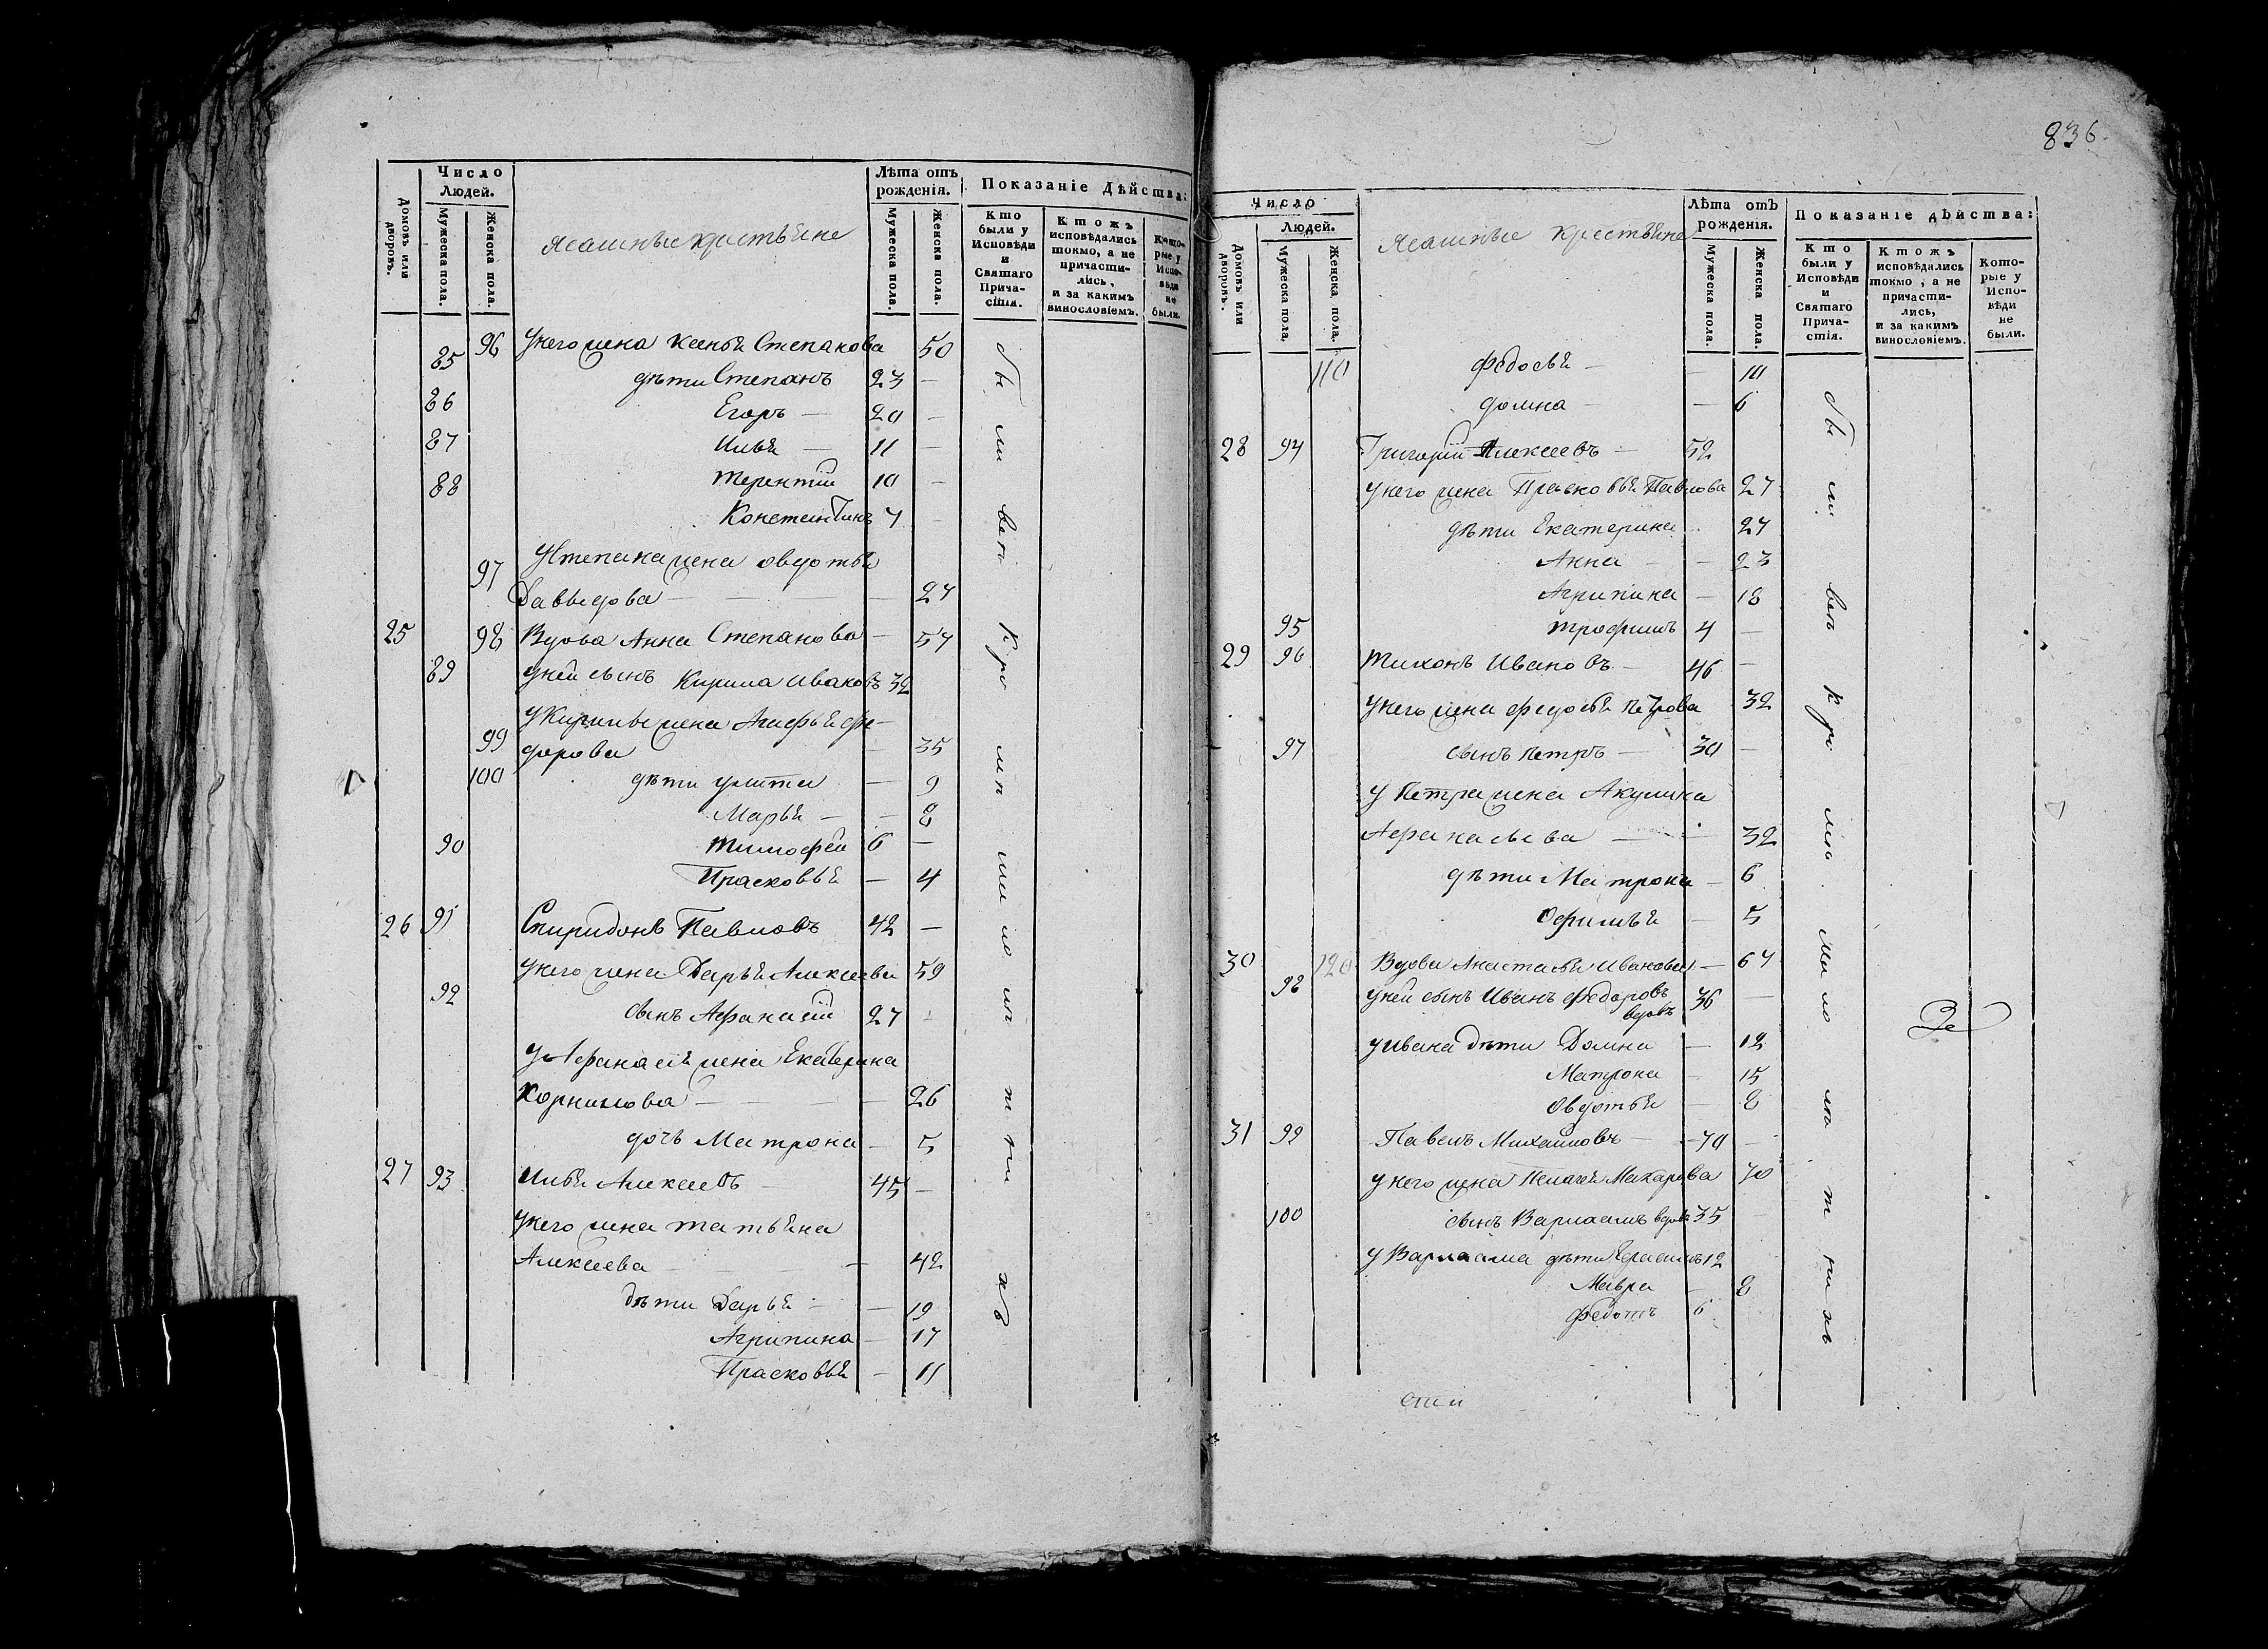 Число Людей.
Лѣта отъ рожденія.
Показаніе Дѣйства:
Домовъ или дворовъ.
Мужеска пола.
Женска пола.
Ясашные крестьяне
Мужеска пола.
Женска пола.
Кто были у Исповѣди и Святаго Причастія.
Ктожъ исповѣдались токмо, а не причастились, и за какимъ винословіемъ.
Которые у Исповѣди не были.
96 У него жена Ксенья Степанова 50
85 дѣти Степанъ 23 —
86 Егоръ — 20 —
87 Илья — 11 —
88 Терентій 10 —
Констентинъ 7 —
97 У Степана жена Овдотья
Давыдова — 27
25 98 Вдова Анна Степанова — 57
89 У ней сынъ Кирила Ивановъ 32
У Кирилы жена Агафья Фе-
99 дорова — 35
100 дѣти Улита — 9
Марья — 8
90 Тимофей 6 —
Прасковья — 4
26 91 Спиридонъ Павловъ 42 —
У него жена Дарья Алексеева 59
92 сынъ Афанасій 27
У Афанасія жена Екатерина
Корнилова — 26
дочь Матрона — 5
27 93 Илья Алексеевъ 45 —
У него жена Татьяна
Алексеева — 42
дѣти Дарья — 19
Агрипина — 17
Прасковья — 11
836.
Число Людей.
Лѣта отъ рожденія.
Показаніе дѣйства:
Домовъ или дворовъ.
Мужеска пола.
Женска пола.
Ясашные крестьяне
Мужеска пола.
Женска пола.
Кто были у Исповѣди и Святаго Причастія.
Ктожъ исповѣдались токмо, а не причастились, и за какимъ винословіемъ.
Которые у Исповѣди не были.
110 Федосья — 10
Домна — 6
28 94 Григорій Алексеевъ — 52
У него жена Прасковья Павлова 27
дѣти Екатерина 27
Анна — 23
Агрипина — 18
95 Трофимъ 4 —
29 96 Тихонъ Ивановъ — 46 —
У него жена Федосья Петрова 32
97 сынъ Петръ — 30 —
У Петра жена Акулина
Афанасьева — 32
дѣти Матрона — 6
Офимья — 5
30 120 Вдова Анастасья Иванова — 67
98 У ней сынъ Иванъ Федоровъ 36 —
вдовъ
У Ивана дѣти Домна — 12
Матрона — 15
Овдотья — 8
31 99 Павелъ Михайловъ — 70 —
У него жена Пелагея Макарова 70
100 сынъ Варлаамъ вдовъ 35 —
У Варлаама дѣти Герасимъ 12
Мавра — 8
Федотъ 6